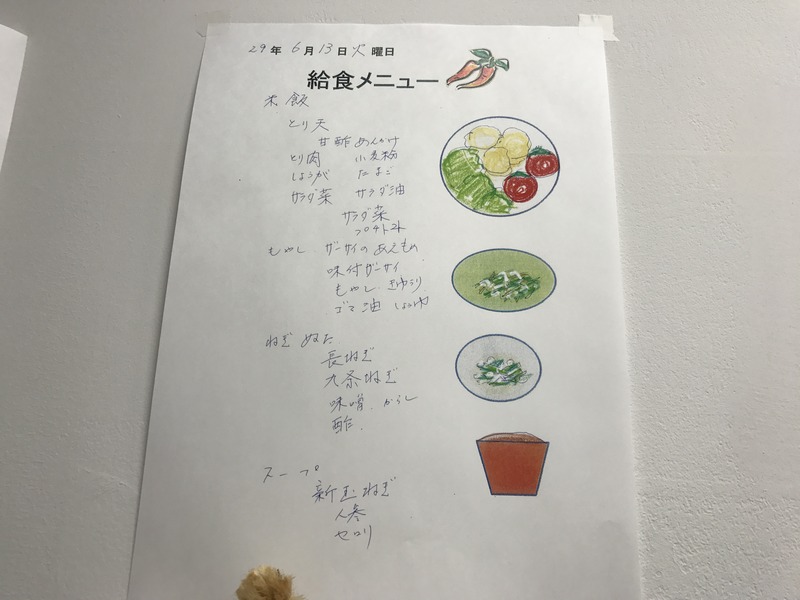 29年 6月 13日 火曜日
給食メニュー
米飯
とり天
甘酢あんかけ
とり肉 小麦粉
しょうが たまご
サラダ菜 サラダ油
サラダ菜
プチトマト
もやし ザーサイのあえもの
味付ザーサイ
もやし きゅうり
ゴマ油 しょうゆ
ねぎぬた
長ねぎ
九条ねぎ
味噌、からし
酢、
スープ
新玉ねぎ
人参
セロリ